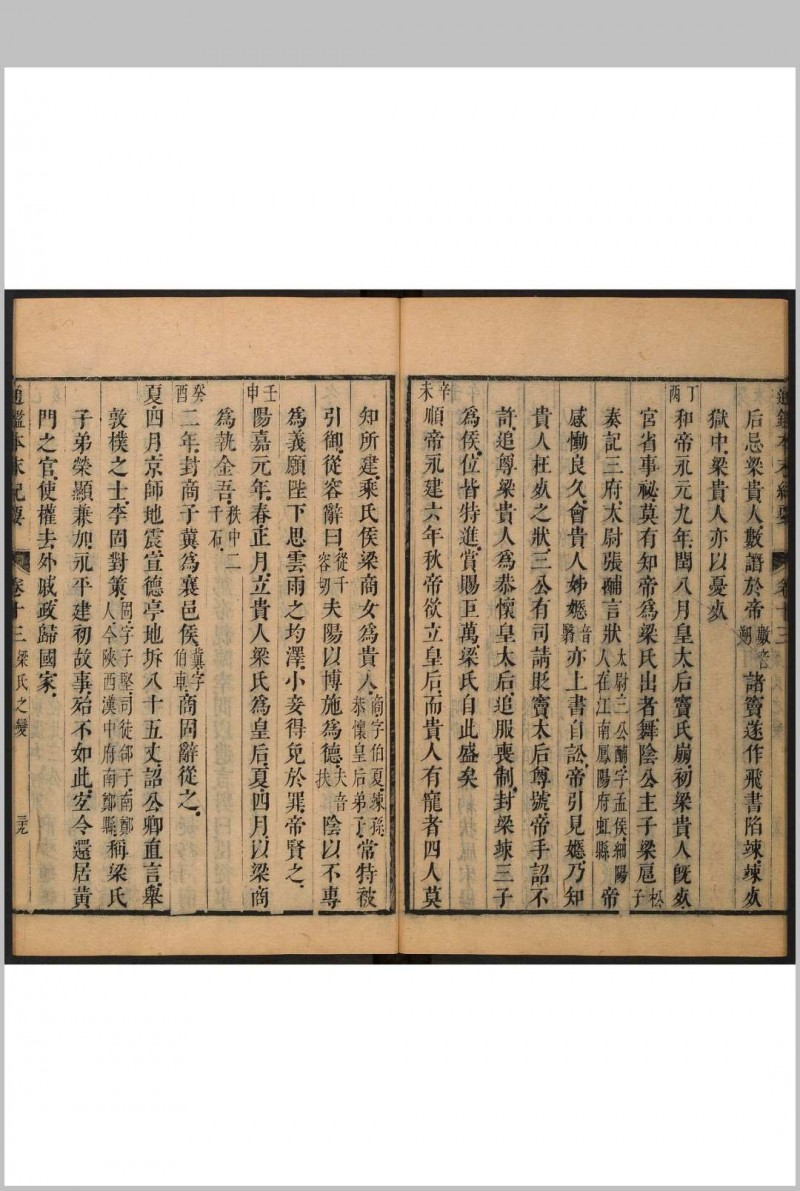 通鑑本末紀要　卷十三
后忌梁貴人數譖於帝數音朔諸竇遂作飛書陷竦竦死
獄中梁貴人亦以憂死
丁酉
和帝永元九年閏八月皇太后竇氏崩初梁貴人旣死
宮省事祕莫有知帝爲梁氏出者舞陰公主子梁扈松子
奏記三府太尉張酺言狀太尉三公酺字孟侯細陽人在江南鳳陽府虹縣帝
感慟良久會貴人姊嫕音翳亦上書自訟帝引見嫕乃知
貴人枉死之狀三公有司請貶竇太后尊號帝手詔不
許追尊梁貴人爲恭懷皇太后追服喪制封梁竦三子
爲侯位皆特進賞賜巨萬梁氏自此盛矣
辛未
順帝永建六年秋帝欲立皇后而貴人有寵者四人莫
知所建乘氏侯梁商女爲貴人商字伯夏竦孫恭懷皇后弟子常特被
引御從容辭曰從千容切夫陽以博施爲德夫音扶陰以不專
爲義願陛下思雲雨之均澤小妾得免於罪帝賢之
壬申
陽嘉元年春正月立貴人梁氏爲皇后夏四月以梁商
爲執金吾秩中二千石
癸酉
二年封商子冀爲襄邑侯冀字伯車商固辭從之
夏四月京師地震宣德亭地坼八十五丈詔公卿直言舉
敦樸之士李固對策固字子堅司徒郃子南鄭人今陝西漢中府南鄭縣稱梁氏
子弟榮顯兼加永平建初故事殆不如此宜令還居黃
門之官使權去外戚政歸國家
通鑑本末紀要　卷十三　梁氏之變　三九